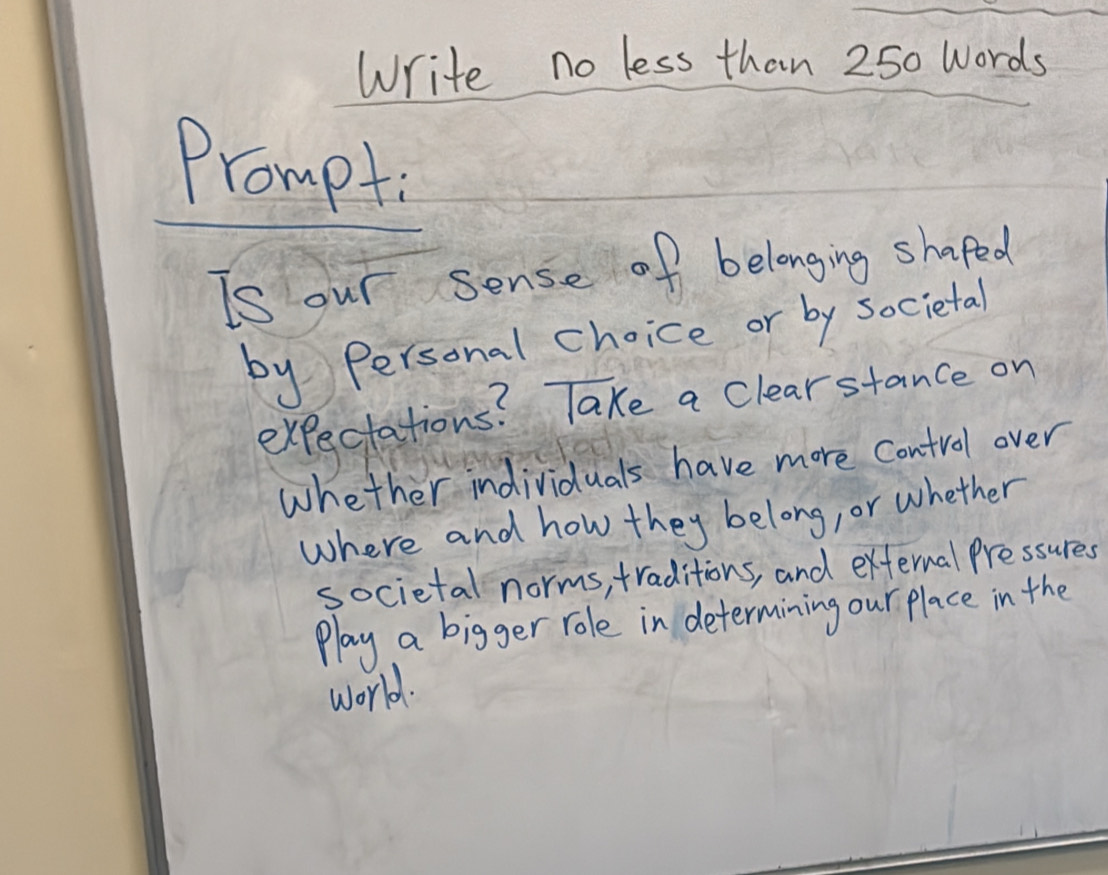 Write no less than 250 Words
Prompt:
Is our sense of belonging shaped
by Personal choice or by societal
expectations? Take a clear stance on
whether individuals have more control over
where and how they belong, or whether
societal norms, traditions, and external Pressures
Play a bigger role in determining our place in the
world.